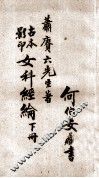 何保安藏書
蕭賡六先生著
古本
影印
女科經綸下冊